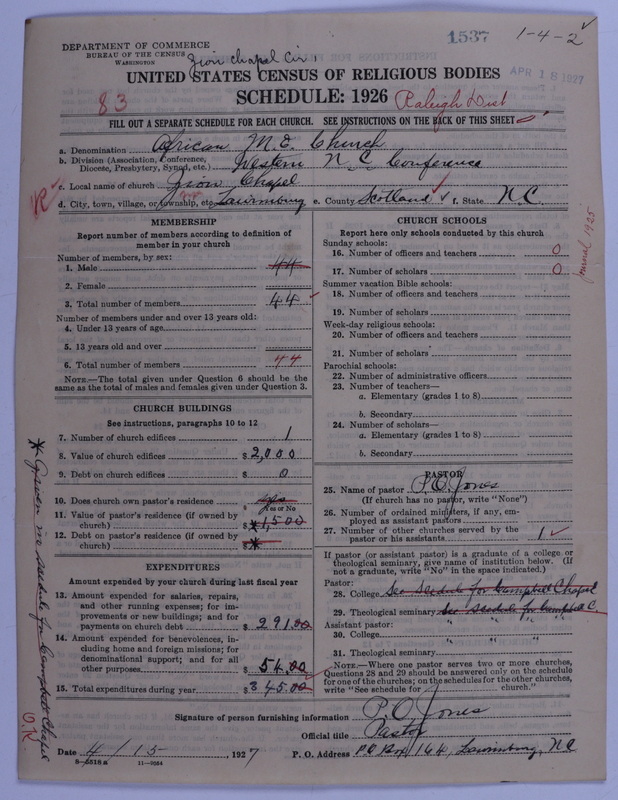 1537
1-4-2
DEPARTMENT OF COMMERCE
BUREAU OF THE CENSUS
WASHINGTON
Zion Chapel Cir.
APR 18 1927
UNITED STATES CENSUS OF RELIGIOUS BODIES
83
SCHEDULE: 1926
Raleigh Dist
FILL OUT A SEPARATE SCHEDULE FOR EACH CHURCH. SEE INSTRUCTIONS ON THE BACK OF THIS SHEET
a. Denomination African M. E. Church
b. Division (Association, Conference, Diocese, Presbytery, Synod, etc.) Western N. C. Conference
c. Local name of church Zion Chapel
d. City, town, village, or township, etc. Laurinburg e. County Scotland f. State N.C.
MEMBERSHIP
Report number of members according to definition of
member in your church
Number of members, by sex:
1. Male 44
2. Female
3. Total number of members 44
Number of members under and over 13 years old:
4. Under 13 years of age
5. 13 years old and over
6. Total number of members 44
NOTE.—The total given under Question 6 should be the
same as the total of males and females given under Question 3.
CHURCH BUILDINGS
See instructions, paragraphs 10 to 12
7. Number of church edifices 1
8. Value of church edifices $2,000
9. Debt on church edifices $ 0
10. Does church own pastor's residence yes
Yes or No
11. Value of pastor's residence (if owned by
church) $*1,500
12. Debt on pastor's residence (if owned by
church) $*
EXPENDITURES
Amount expended by your church during last fiscal year
13. Amount expended for salaries, repairs,
and other running expenses; for im-
provements or new buildings; and for
payments on church debt $291.00
14. Amount expended for benevolences, in-
cluding home and foreign missions; for
denominational support; and for all
other purposes $54.00
15. Total expenditures during year $345.00
CHURCH SCHOOLS
Report here only schools conducted by this church
Sunday schools:
16. Number of officers and teachers 0
17. Number of scholars 0
Summer vacation Bible schools:
18. Number of officers and teachers
19. Number of scholars
Week-day religious schools:
20. Number of officers and teachers
21. Number of scholars
Parochial schools:
22. Number of administrative officers
23. Number of teachers—
a. Elementary (grades 1 to 8)
b. Secondary
24. Number of scholars—
a. Elementary (grades 1 to 8)
b. Secondary
PASTOR
25. Name of pastor P. O. Jones
(If church has no pastor, write "None")
26. Number of ordained ministers, if any, em-
ployed as assistant pastors
27. Number of other churches served by the
pastor or his assistants 1
If pastor (or assistant pastor) is a graduate of a college or
theological seminary, give name of institution below. (If
not a graduate, write "No" in the space indicated.)
Pastor:
28. College See Scedule for Campbell Chapel
29. Theological seminary See Scedule for Campbell C.
Assistant pastor:
30. College " " " "
31. Theological seminary
NOTE.—Where one pastor serves two or more churches,
Questions 28 and 29 should be answered only on the schedule
for one of the churches; on the schedules for the other churches,
write "See schedule for church."
Signature of person furnishing information P. O. Jones
Official title Pastor
Date 4/15, 1927
P. O. Address P O Box 164, Laurinburg, N.C.
8-5518a 11-9264
* Given in scedule for Campbell Chapel
O.K.
Journal 1925